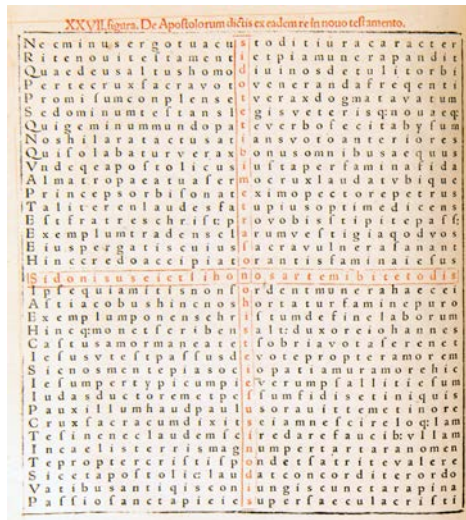 XXVII. figura. De Apoſtolorum dictis ex eadem re in nouo teſtamento.
Necminusergotuacuſtoditiuracaracter
Ritenouiteſtamentietpiamunerapandit
Quaedeusaltushomodiuinosdetulitorbi
Promiſumconplenseteueraxdogmatavatum
Sedominumteſtanslegisveterisq;nouaeq;
Quigeminummundopateverboſecitabyſum
Noshilaratactusatlansvotoanteriores
Quiſolabaturveraxbonusomnibusaequus
Vndeqeapoſtolicusiuſtaperfaminafida
Almatropaeatuaſertmocruxlaudatvbique
Princepsorbiſonateximopectorepetrus
Taliterenlaudesfatupiusoptimedicens
Exemplumtradenselarumveſtigiaqodvos
Eiuspergatiscuiusſacravulnerafanant
Hinccredoaccipiatorantisfaminaieſus
Sidonisuseietlihonosartemibitetodis
Ipſequiamitisnonſordentmunerahaecei
Aſtiacobushincnoshortaturfaminepuro
Exemplumponenschriſtumdefinelaborum
Hincq;monetſeribensalt:duxoreiohannes
Caſtusamormaneateſobriavotaferenet
Ieſusvteſtpaſſusdevotepropteramorem
Sicnosmentepiasociopatiamuramorehic
Ieſumpertypicumpieverumpſallitieſum
Iudasductoremetpeſſumfidisetiniquis
Pauxillumhaudpaulusorauittemetinore
Cruxſacracumdixitſeiamneſcireloq:lam
Teſineneclaudemſciredarefaucib:vllam
Incaelisterrismagnumpertartaranomen
Tepropterecriſtiſpondetſatriteualere
Siceta poſtolic:laudatconcorditerordo
Vatibusantiqisconiungiscunetarapina
Paſſioſanctapicieiſuperſaeculacriſti